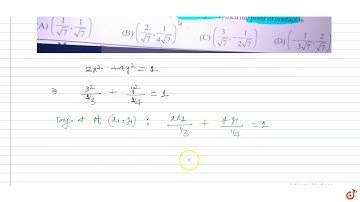 point of contact is
A) (1/√7, 1/√7) (B) (2/√7, 1/4√7) (C) (3/√7, 1/2√7) (D) (-1/3√7, 2/√7)
2x² + 4y² = 1
x²/1/3 + y²/1/4 = 1
at pt. (x₁, y₁) : xx₁/1/3 + y y₁/1/4 = 1